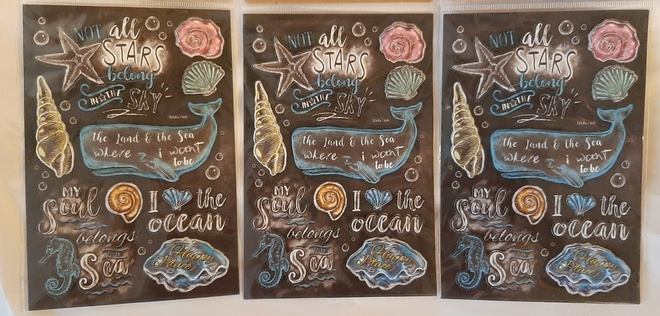 NOT all
STARS
belong
IN THE
SKY
the Land & the Sea
where i want
to be
MY
Soul
belongs
Sea
I the
ocean
Happy
Place
NOT all
STARS
belong
IN THE
SKY
the Land & the Sea
where i want
to be
MY
Soul
belongs
Sea
I the
ocean
Happy
Place
NOT all
STARS
belong
IN THE
SKY
the Land & the Sea
where i want
to be
MY
Soul
belongs
Sea
I the
ocean
Happy
Place